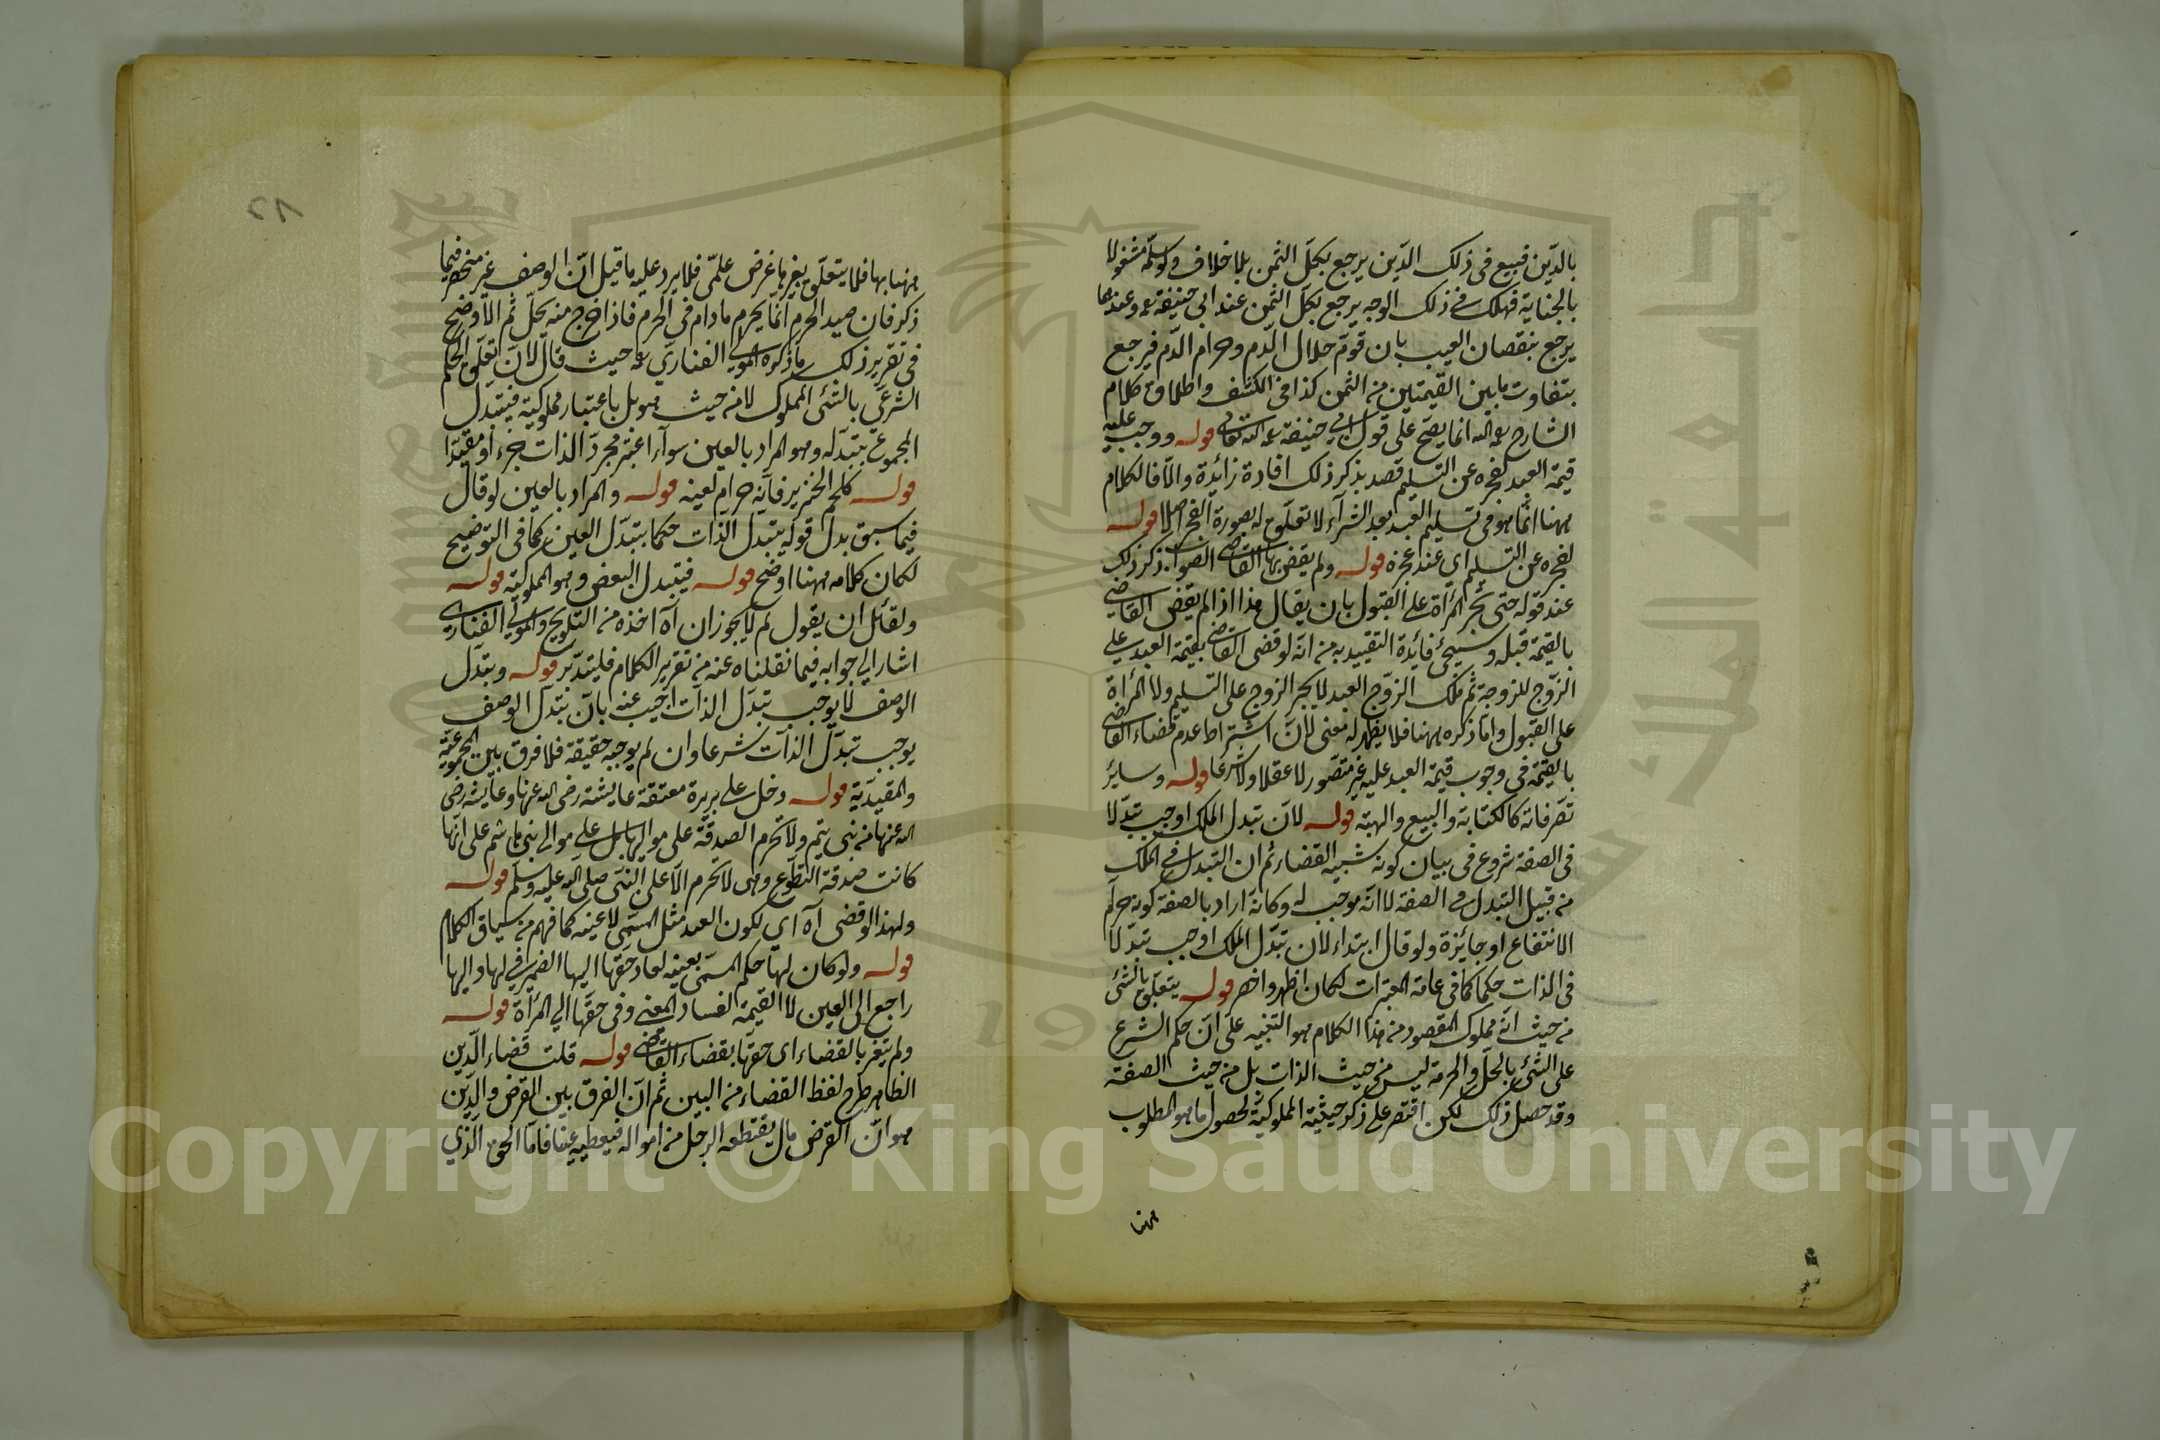 بالدّين فبيع فى ذلك الدّين يرجع بكلّ الثمن بلا خلاف ولو سلّمه مشغولا
بالجناية فهلك فى ذلك الوجه يرجع بكلّ الثمن عند ابى حنيفة وعندهما
يرجع بنقصان العيب بان قوّم حلال الدّم وحرام الدّم فيرجع
بتفاوت ما بين القيمتين من الثمن كذا فى الكشف واطلاق كلام
الشارح انما يصحّ على قول ابى حنيفة قوله ووجب عليه
قيمة العبد لعجزه عن التسليم قصد بذكر ذلك افادة زائدة والّا فالكلام
ههنا انّما هو فى تسليم العبد بعد الشرآء لا تعلّق له بصورة العجز اصلا قوله
لعجزه عن التسليم اى عند عجزه قوله ولم يقض بها القاضى الصواب ذكر ذلك
عند قوله حتى تجبر المرأة على القبول بان يقال هذا اذا لم يقض القاضى
بالقيمة قبله وسيجئ فائدة التقييد به من انّه لو قضى القاضى بقيمة العبد على
الزّوج للزوجة ثم ملك الزوّج العبد لا يجبر الزوج على التسليم ولا المرأة
على القبول وامّا ذكره ههنا فلا يظهر له معنى لانّ اشتراط عدم قضاء القاضى
بالقيمة فى وجوب قيمة العبد عليه غير متصّور لا عقلا ولا شرعا قوله وسائر
تصّرفاته كالكتابة والبيع والهبة قوله لانّ تبدل الملك اوجب تبدّلا
فى الصفة شروع فى بيان كونه شبيه القضاء ثم ان التبدل فى الملك
من قبيل التبدل فى الصفة لا انّه موجب له وكانّه اراد بالصفة كونه حرام
الانتفاع او جائزة ولو قال ابتداء لانّ تبدّل الملك اوجب تبدّلا
فى الذات حكما كما فى عامة المعتبرات لكان اظهر واخصر قوله يتعلّق بالشئ
من حيث انّه مملوك المقصود من هذا الكلام هو التنبيه على انّ حكم الشرع
على الشئ بالحلّ والحرمة ليس من حيث الذات بل من حيث الصفة
وقد حصل ذلك لكن اقتصر على ذكر حيثيّة المملوكيّة لحصول ما هو المطلوب
ههنا
٨٢
ههنا بها فلا يتعلّق بغيرها غرض علمّى فلا يرد عليه ما قيل انّ الوصف غير منحصر فيما
ذكر فان صيد الحرم انّما يحرم ما دام فى الحرم فاذا اخرج منه يحلّ ثم الاوضح
فى تقرير ذلك ما ذكره المولى الفنارى حيث قال لانّ تعلّق الحكم
الشرعى بالشئ المملوك لا من حيث هو بل باعتبار مملوكيّة فيتبدل
المجموع بتبدّله وهو المراد بالعين سوآء اعتبر مجردّ الذات جزء او مقيّدا
قوله كلحم الخنزير فانّه حرام لعينه قوله والمراد بالعين لو قال
فيما سبق بدل قوله بتبدل الذات حكما بتبدّل العين كما فى التوضيح
لكان كلامه ههنا اوضح قوله فيتبدل البعض وهو المملوكيّة قوله
ولقائل ان يقول لم لا يجوز ان آه اخذه من التلويح والمولى الفنارى
اشار الى جوابه فيما نقلناه عنه من تقرير الكلام فليتدبّر قوله وتبدّل
الوصف لا يوجب تبدّل الذات اجيب عنه بانّ تبدّل الوصف
يوجب تبدّل الذات شرعا وان لم يوجبه حقيقة فلا فرق بين المجموعيّة
والمقيديّة قوله دخل على بريرة معتقة عايشة رضى الله عنها وعايشه رضى
الله عنها من بنى تيم ولا تحرم الصدقة على مواليها بل على موالى بنى هاشم على انّها
كانت صدقة التطّوع وهى لا تحرم الّا على النبّى صلى الله عليه وسلم قوله
ولهذا لو قضى آه اى لكون العبد مثل المسّمى لا عينه كما فهم من سياق الكلام
قوله ولو كان لها حكم المسمّى بعينه لعاد حقّها اليها الضمير فى لها واليها
راجع الى العين لا القيمة لفساد المعنى وفى حقّها الى المرأة قوله
ولم يتغير بالقضاء اى حقّها بقضاء القاضى قوله قلت قضاء الدّين
الظاهر طرح لفظ القضاء من البين ثم انّ الفرق بين القرض والدّين
هو انّ القرض مال يقتطعه الرجل من امواله فيعطيه عينا فامّا الحق الّذى
Copyright © King Saud University